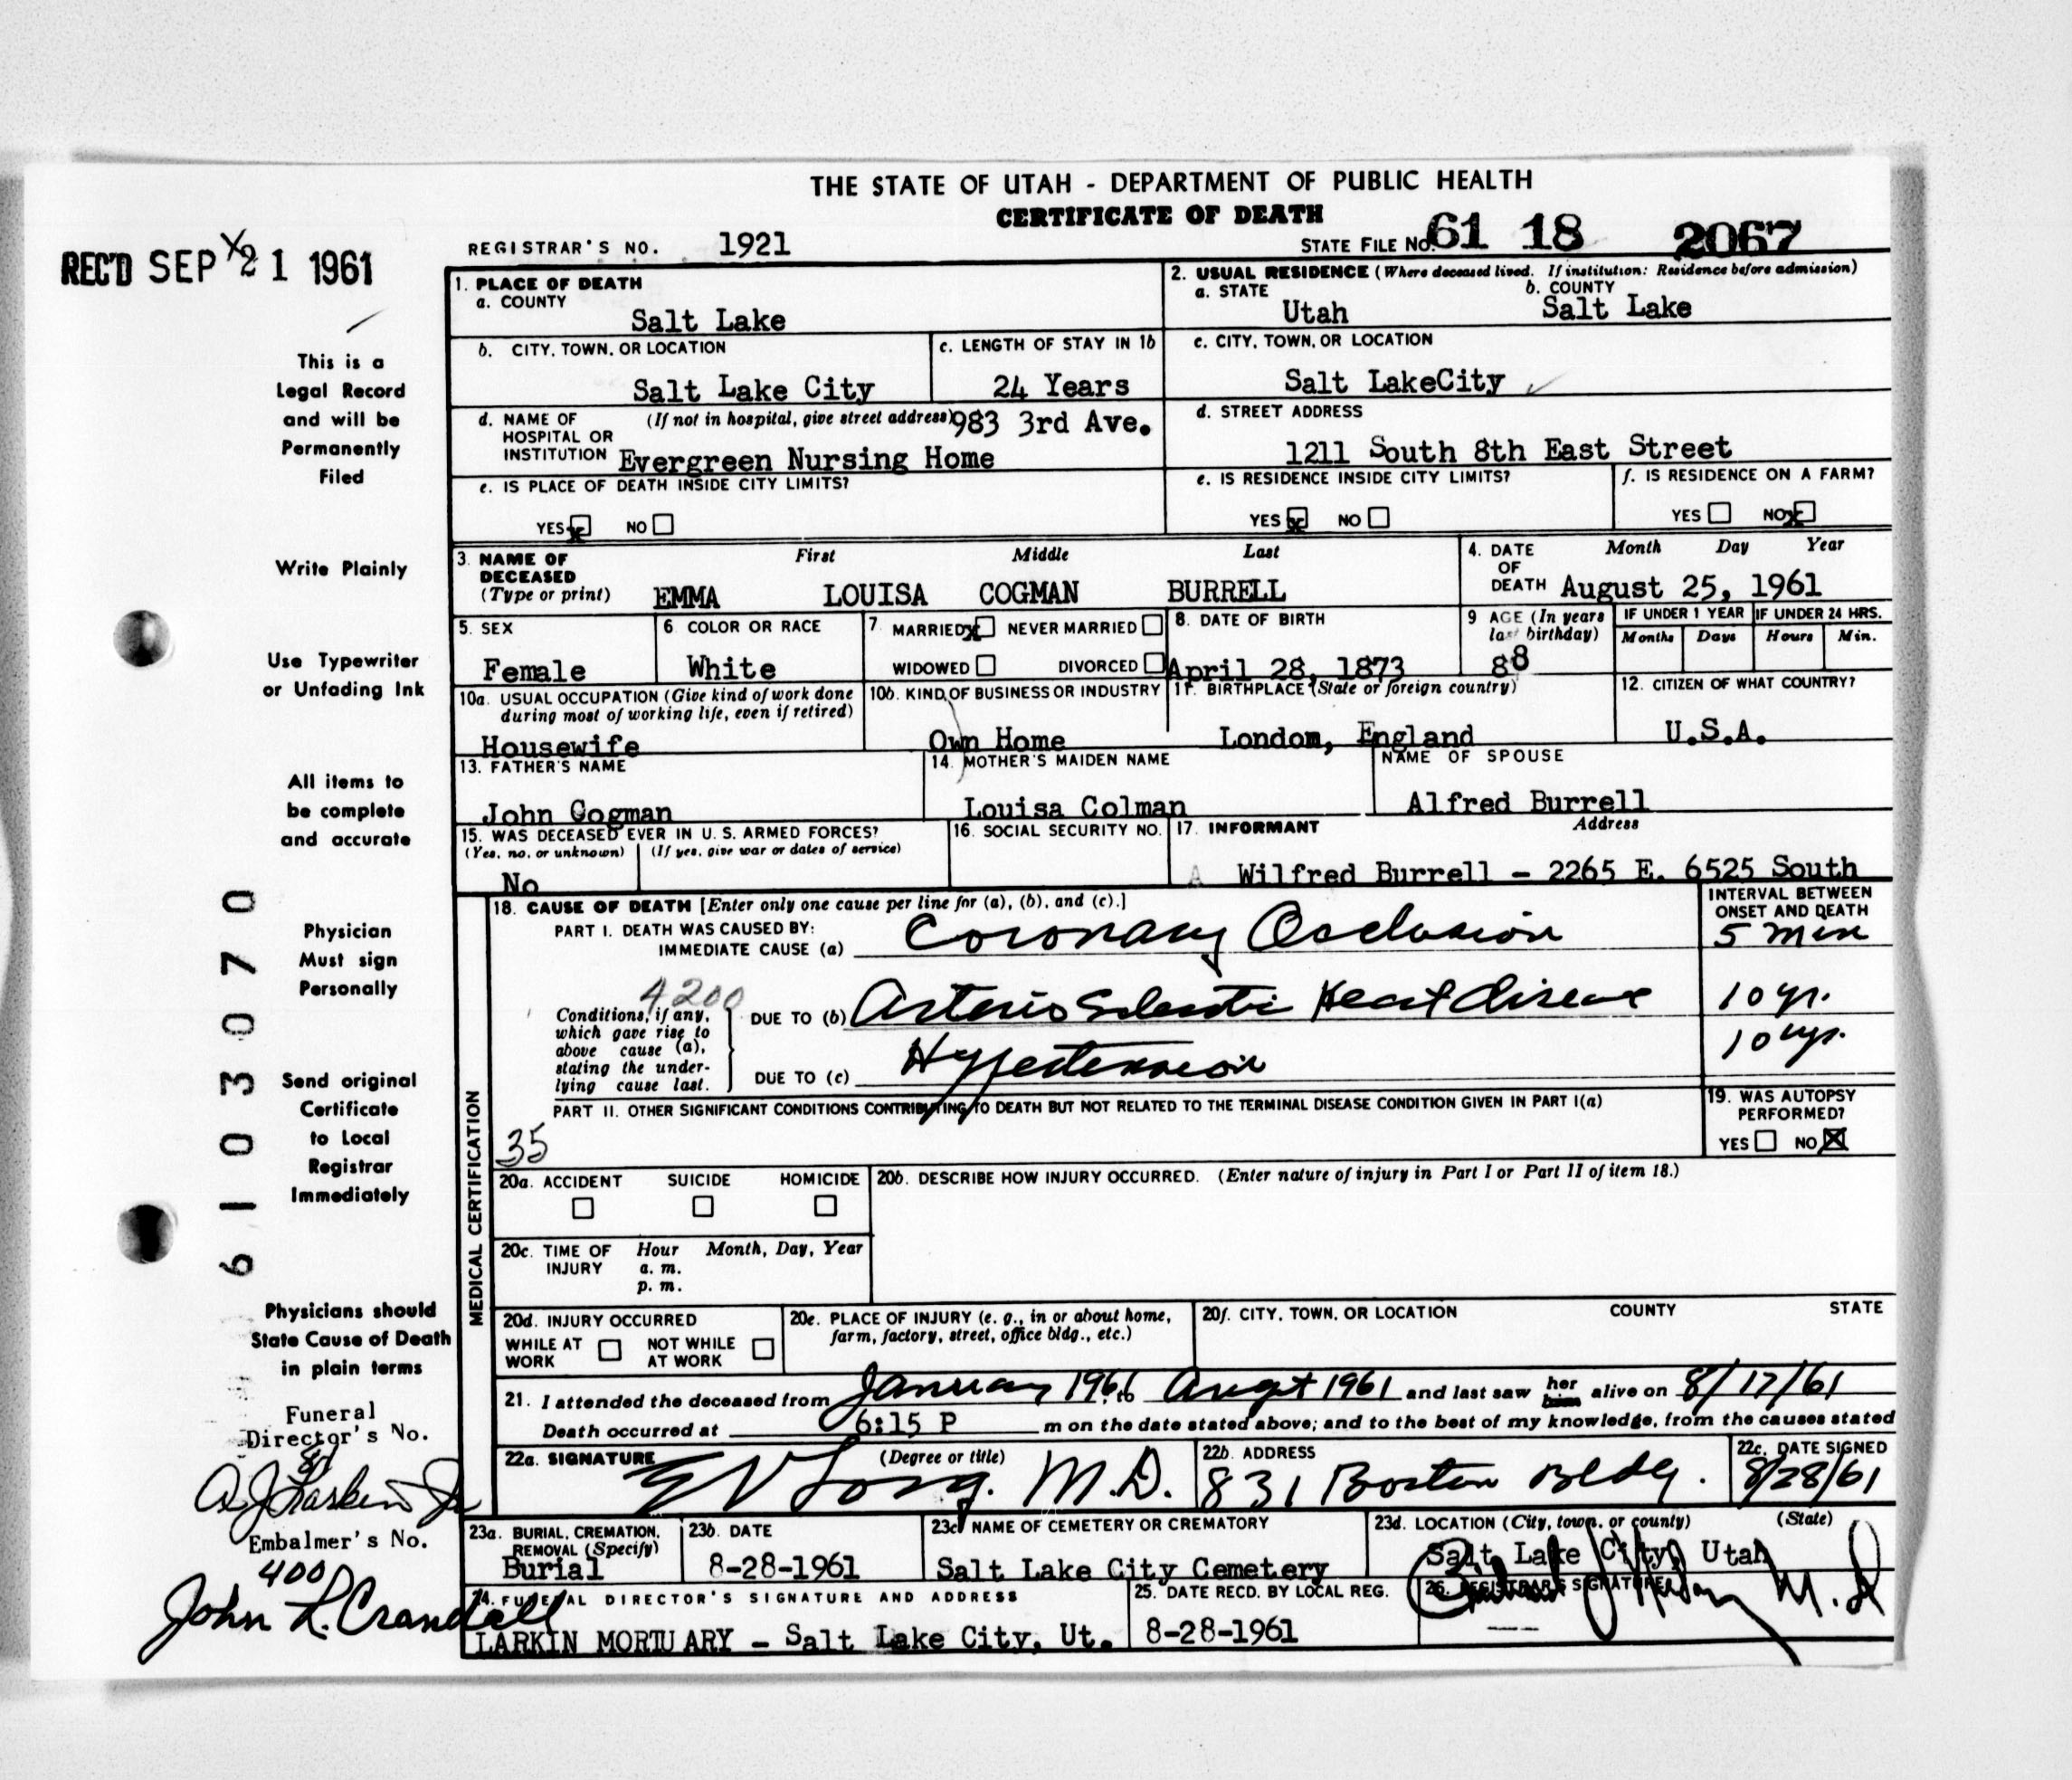 THE STATE OF UTAH - DEPARTMENT OF PUBLIC HEALTH
CERTIFICATE OF DEATH
REC'D SEP 21 1961
REGISTRAR'S NO. 1921
STATE FILE NO. 61 18 2067
1. PLACE OF DEATH
a. COUNTY
Salt Lake
2. USUAL RESIDENCE (Where deceased lived. If institution: Residence before admission)
a. STATE
Utah
b. COUNTY
Salt Lake
b. CITY, TOWN, OR LOCATION
Salt Lake City
c. LENGTH OF STAY IN 1b
24 Years
c. CITY, TOWN, OR LOCATION
Salt LakeCity
d. NAME OF HOSPITAL OR INSTITUTION
(If not in hospital, give street address) 983 3rd Ave.
Evergreen Nursing Home
d. STREET ADDRESS
1211 South 8th East Street
e. IS PLACE OF DEATH INSIDE CITY LIMITS?
YES x NO
e. IS RESIDENCE INSIDE CITY LIMITS?
YES x NO
f. IS RESIDENCE ON A FARM?
YES NO x
3. NAME OF DECEASED
(Type or print)
First Middle Last
EMMA LOUISA COGMAN BURRELL
4. DATE OF DEATH
Month Day Year
August 25, 1961
5. SEX
Female
6. COLOR OR RACE
White
7. MARRIED x NEVER MARRIED
WIDOWED DIVORCED
8. DATE OF BIRTH
April 28, 1873
9 AGE (In years last birthday)
88
IF UNDER 1 YEAR
Months Days
IF UNDER 24 HRS.
Hours Min.
10a. USUAL OCCUPATION (Give kind of work done during most of working life, even if retired)
Housewife
10b. KIND OF BUSINESS OR INDUSTRY
Own Home
11. BIRTHPLACE (State or foreign country)
London, England
12. CITIZEN OF WHAT COUNTRY?
U.S.A.
13. FATHER'S NAME
John Cogman
14. MOTHER'S MAIDEN NAME
Louisa Colman
NAME OF SPOUSE
Alfred Burrell
15. WAS DECEASED EVER IN U. S. ARMED FORCES?
(Yes, no, or unknown) (If yes, give war or dates of service)
No
16. SOCIAL SECURITY NO.
17. INFORMANT Address
Wilfred Burrell - 2265 E. 6525 South
MEDICAL CERTIFICATION
18. CAUSE OF DEATH [Enter only one cause per line for (a), (b), and (c).]
PART I. DEATH WAS CAUSED BY:
IMMEDIATE CAUSE (a) Coronary Occlusion
INTERVAL BETWEEN ONSET AND DEATH
5 min
4200
Conditions, if any, which gave rise to above cause (a), stating the underlying cause last.
DUE TO (b) Arterio Sclerotic Heart disease
10 yr.
DUE TO (c) Hypertension
10 yr.
PART II. OTHER SIGNIFICANT CONDITIONS CONTRIBUTING TO DEATH BUT NOT RELATED TO THE TERMINAL DISEASE CONDITION GIVEN IN PART I(a)
35
19. WAS AUTOPSY PERFORMED?
YES NO X
20a. ACCIDENT SUICIDE HOMICIDE
20b. DESCRIBE HOW INJURY OCCURRED. (Enter nature of injury in Part I or Part II of item 18.)
20c. TIME OF INJURY
Hour Month, Day, Year
a. m.
p. m.
20d. INJURY OCCURRED
WHILE AT WORK NOT WHILE AT WORK
20e. PLACE OF INJURY (e. g., in or about home, farm, factory, street, office bldg., etc.)
20f. CITY, TOWN, OR LOCATION COUNTY STATE
21. I attended the deceased from January 1961 to August 1961 and last saw her him alive on 8/17/61
Death occurred at 6:15 P m on the date stated above; and to the best of my knowledge, from the causes stated
22a. SIGNATURE (Degree or title)
E V Long. M.D.
22b. ADDRESS
831 Boston Bldg.
22c. DATE SIGNED
8/28/61
23a. BURIAL, CREMATION, REMOVAL (Specify)
Burial
23b. DATE
8-28-1961
23c NAME OF CEMETERY OR CREMATORY
Salt Lake City Cemetery
23d. LOCATION (City, town, or county) (State)
Salt Lake City, Utah
24. FUNERAL DIRECTOR'S SIGNATURE AND ADDRESS
LARKIN MORTUARY - Salt Lake City, Ut.
25. DATE RECD. BY LOCAL REG.
8-28-1961
26. REGISTRAR'S SIGNATURE
M.D
This is a
Legal Record
and will be
Permanently
Filed
Write Plainly
Use Typewriter
or Unfading Ink
All items to
be complete
and accurate
Physician
Must sign
Personally
Send original
Certificate
to Local
Registrar
Immediately
Physicians should
State Cause of Death
in plain terms
Funeral
Director's No.
A J Larkin Jr
Embalmer's No.
400
John L. Crandall
6103070